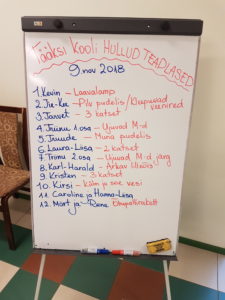 Tääksi Kooli HULLUD TEADLASED
9. nov 2018
1. Kevin - Laavalamp
2. Jre-Kee - Pilv pudelis / Klapuvad veenired
3. Janvet - 3 katset
4. Triinu 1. osa - Ujuvad M-d
5. Juude - Muna pudelis
6. Laura-Liisa - 2 katset
7. Triinu 2. osa - Ujuvad M-d järg
8. Karl-Harald - Ärkav lillõis
9. Kristen - 3 katset
10. Kirsi - Külm ja soe vesi
11. Caroline ja Hanna-Liisa
12. Mart ja Rena